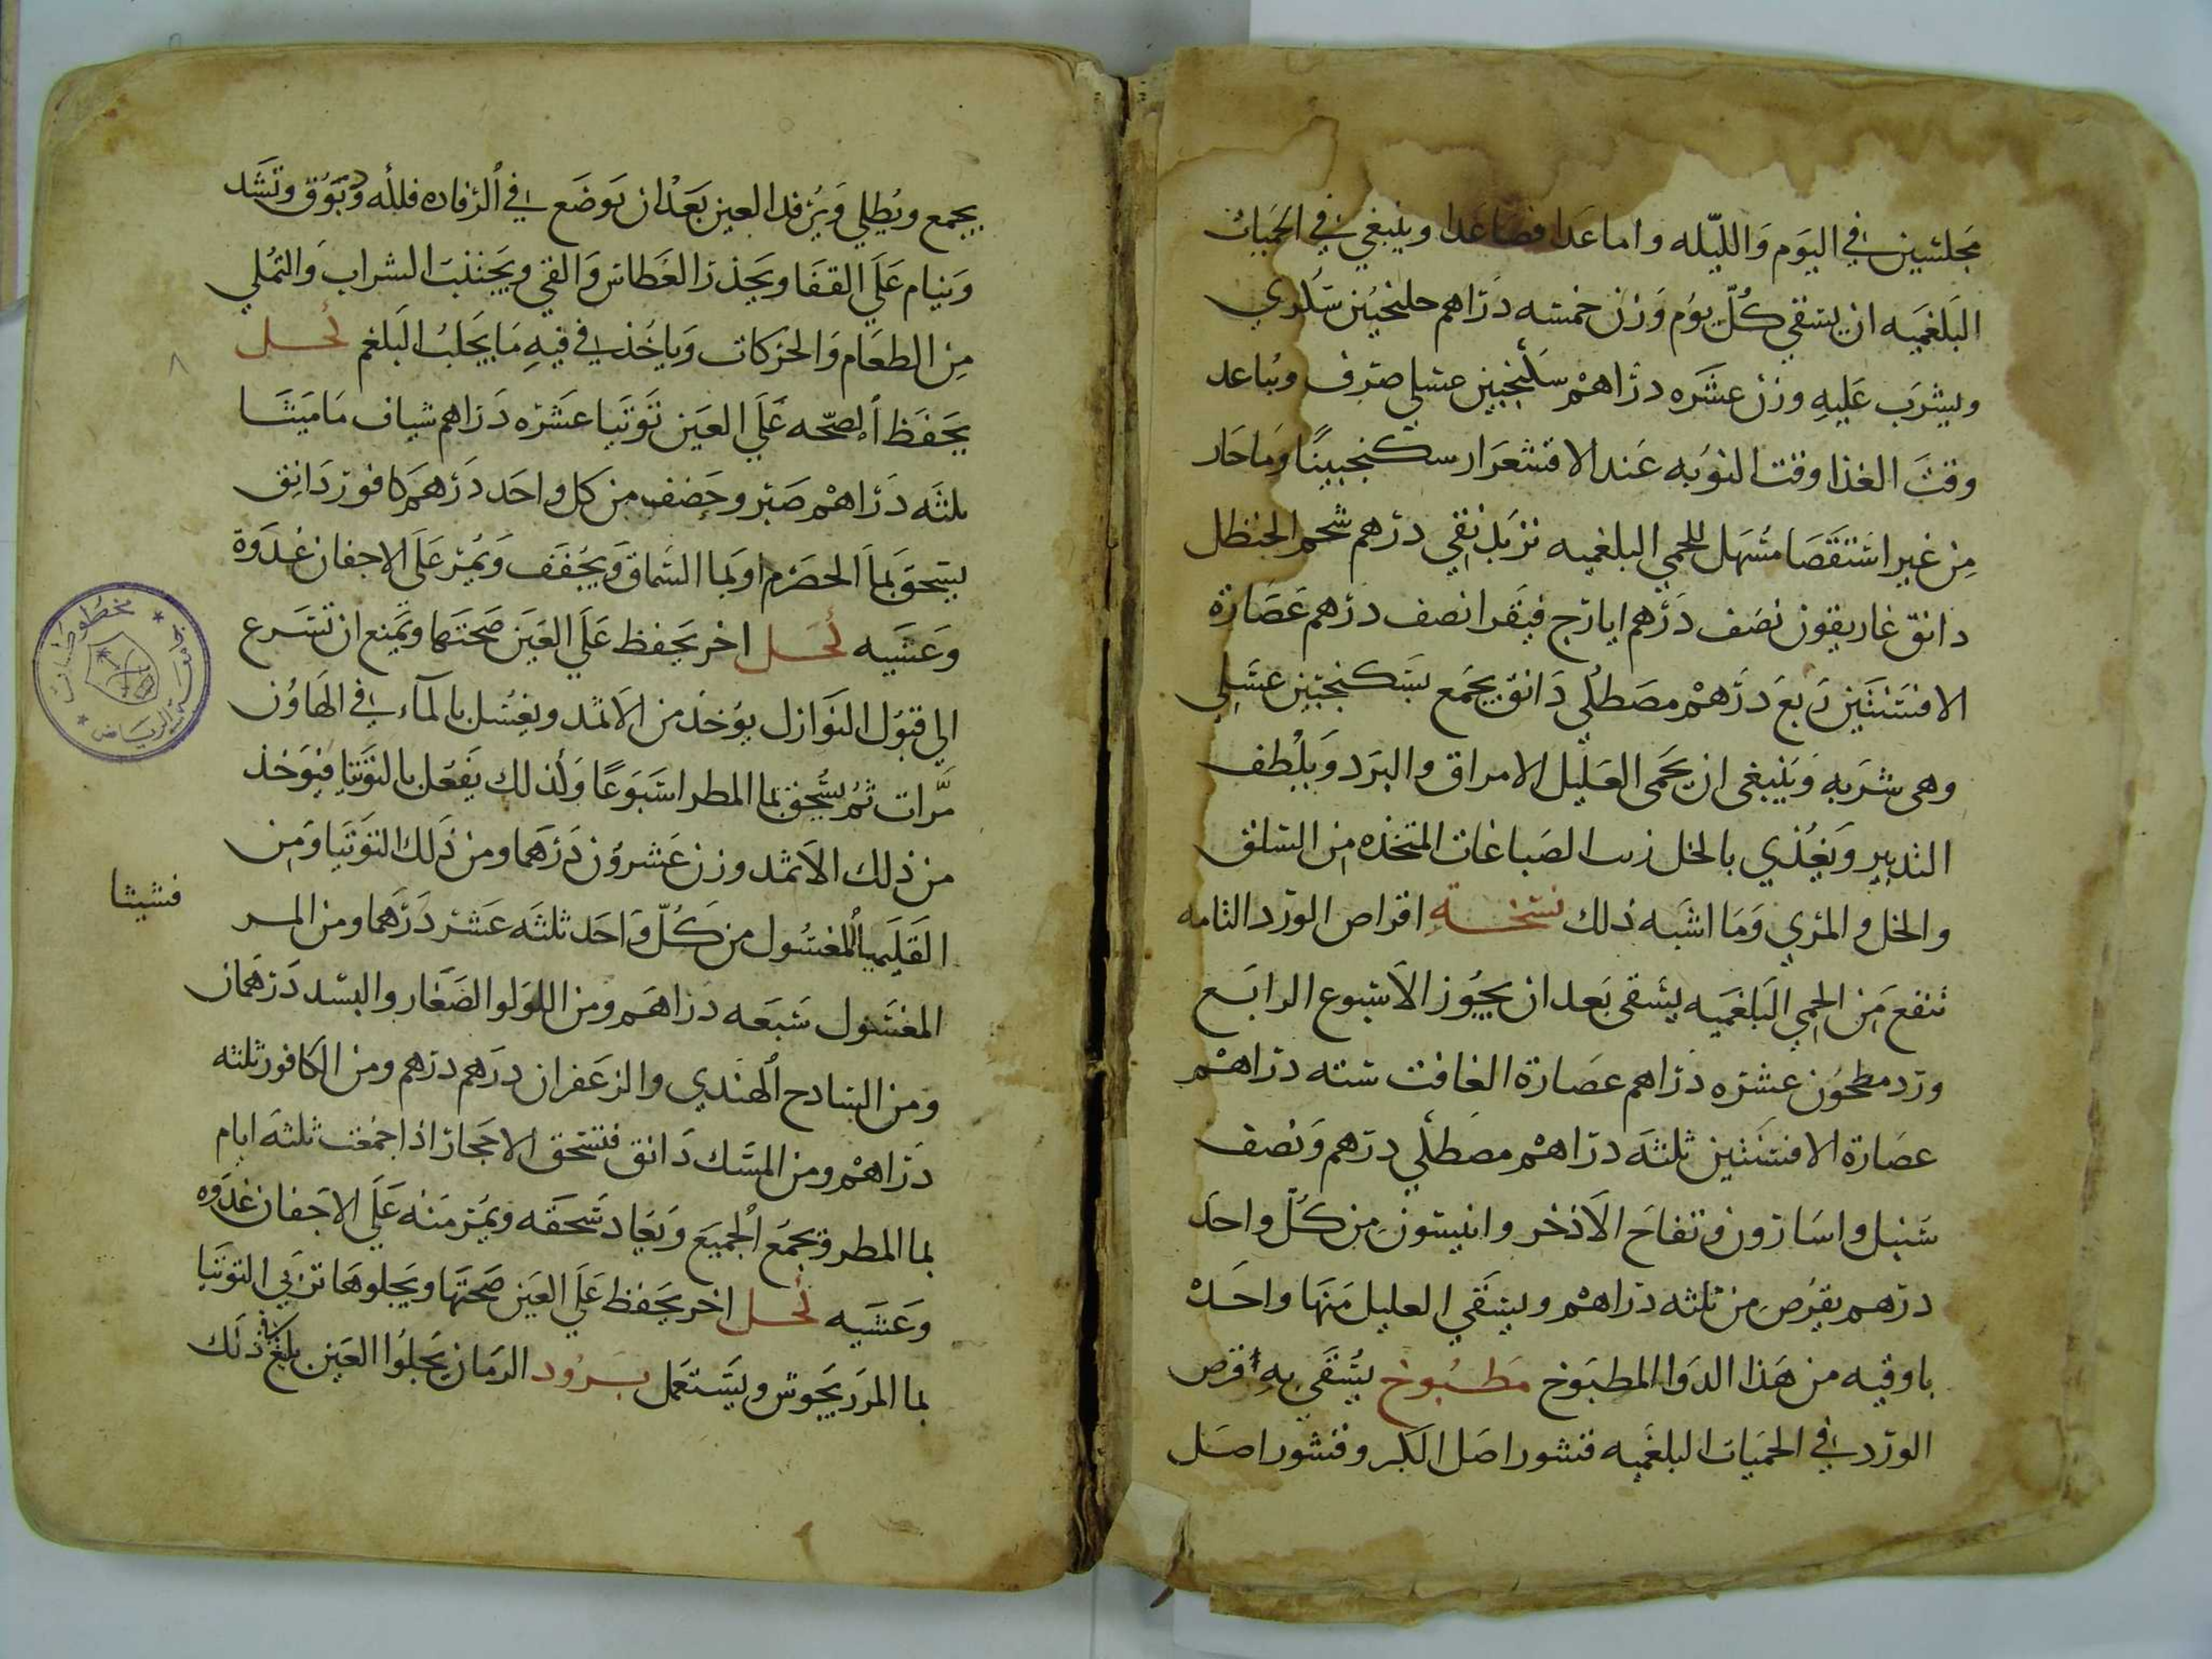 مجلسين في اليوم والليله واما عدا فصاعدا وينبغي في الحميات
البلغميه ان يسقي كل يوم وزن خمسه دراهم جلنجبين سكري
ويشرب عليه وزن عشره دراهم سكنجبين عسلي صرف ويباعد
وقت الغذا وقت النوبه عند الاقشعرار سكنجبينا وما حار
من غير استقصا مسهل للحمي البلغميه تربد نقي درهم شحم الحنظل
دانق غاريقون نصف درهم ايارج فيقرا نصف درهم عصارة
الافسنتين ربع درهم مصطكي دانق يجمع بسكنجبين عسلي
وهي شربه وينبغي ان يحمي العليل الامراق والبرد ويلطف
التدبير ويغذي بالخل زيت الصباغات المتخذه من السلق
والخل والمري وما اشبه ذلك نسخة اقراص الورد التامه
تنفع من الحمي البلغميه يسقي بعد ان يجوز الاسبوع الرابع
ورد مطحون عشره دراهم عصارة الغافت سته دراهم
عصارة الافسنتين ثلثه دراهم مصطكي درهم ونصف
سنبل واسارون وتفاح الاذخر وانيسون من كل واحد
درهم يقرص من ثلثه دراهم ويسقي العليل منها واحد
باوقيه من هذا الدوا المطبوخ مطبوخ يسقي به اقرص
الورد في الحميات البلغميه قشور اصل الكبر وقشور اصل
يجمع ويطلي ويرفد العين بعد ان يوضع في الرفاده فلكه ويوثق وتشد
وينام علي القفا ويحذر العطاس والقي ويجتنب الشراب والتملي
من الطعام والحركات وياخذ في فيه ما يجلب البلغم كحل
يحفظ الصحه علي العين توتيا عشره دراهم شياف ماميثا
ثلثه دراهم صبر وحضض من كل واحد درهم كافور دانق
يسحق بما الحصرم او بما السماق ويجفف ويمر علي الاجفان غدوة
وعشيه كحل اخر يحفظ علي العين صحتها ويمنع ان تسرع
الي قبول النوازل يوخذ من الاثمد ويغسل بالماء في الهاون
مرات ثم يسحق بما المطر اسبوعا وكذلك يفعل بالتوتيا فيوخذ
من ذلك الاثمد وزن عشرون درهما ومن ذلك التوتيا ومن
القليميا المغسول من كل واحد ثلثه عشر درهما ومن المر
قشيثا
المغسول سبعه دراهم ومن اللولو الصغار والبسد درهمان
ومن السادج الهندي والزعفران درهم درهم ومن الكافور ثلثه
دراهم ومن المسك دانق فتسحق الاحجار اذا جمعت ثلثه ايام
بما المطر ويجمع الجميع ويعاد سحقه ويمر منه علي الاجفان غدوه
وعشيه كحل اخر يحفظ علي العين صحتها ويجلوها تربي التوتيا
بما المردجوش ويستعمل برود الرمان يجلوا العين بلغ في ذلك